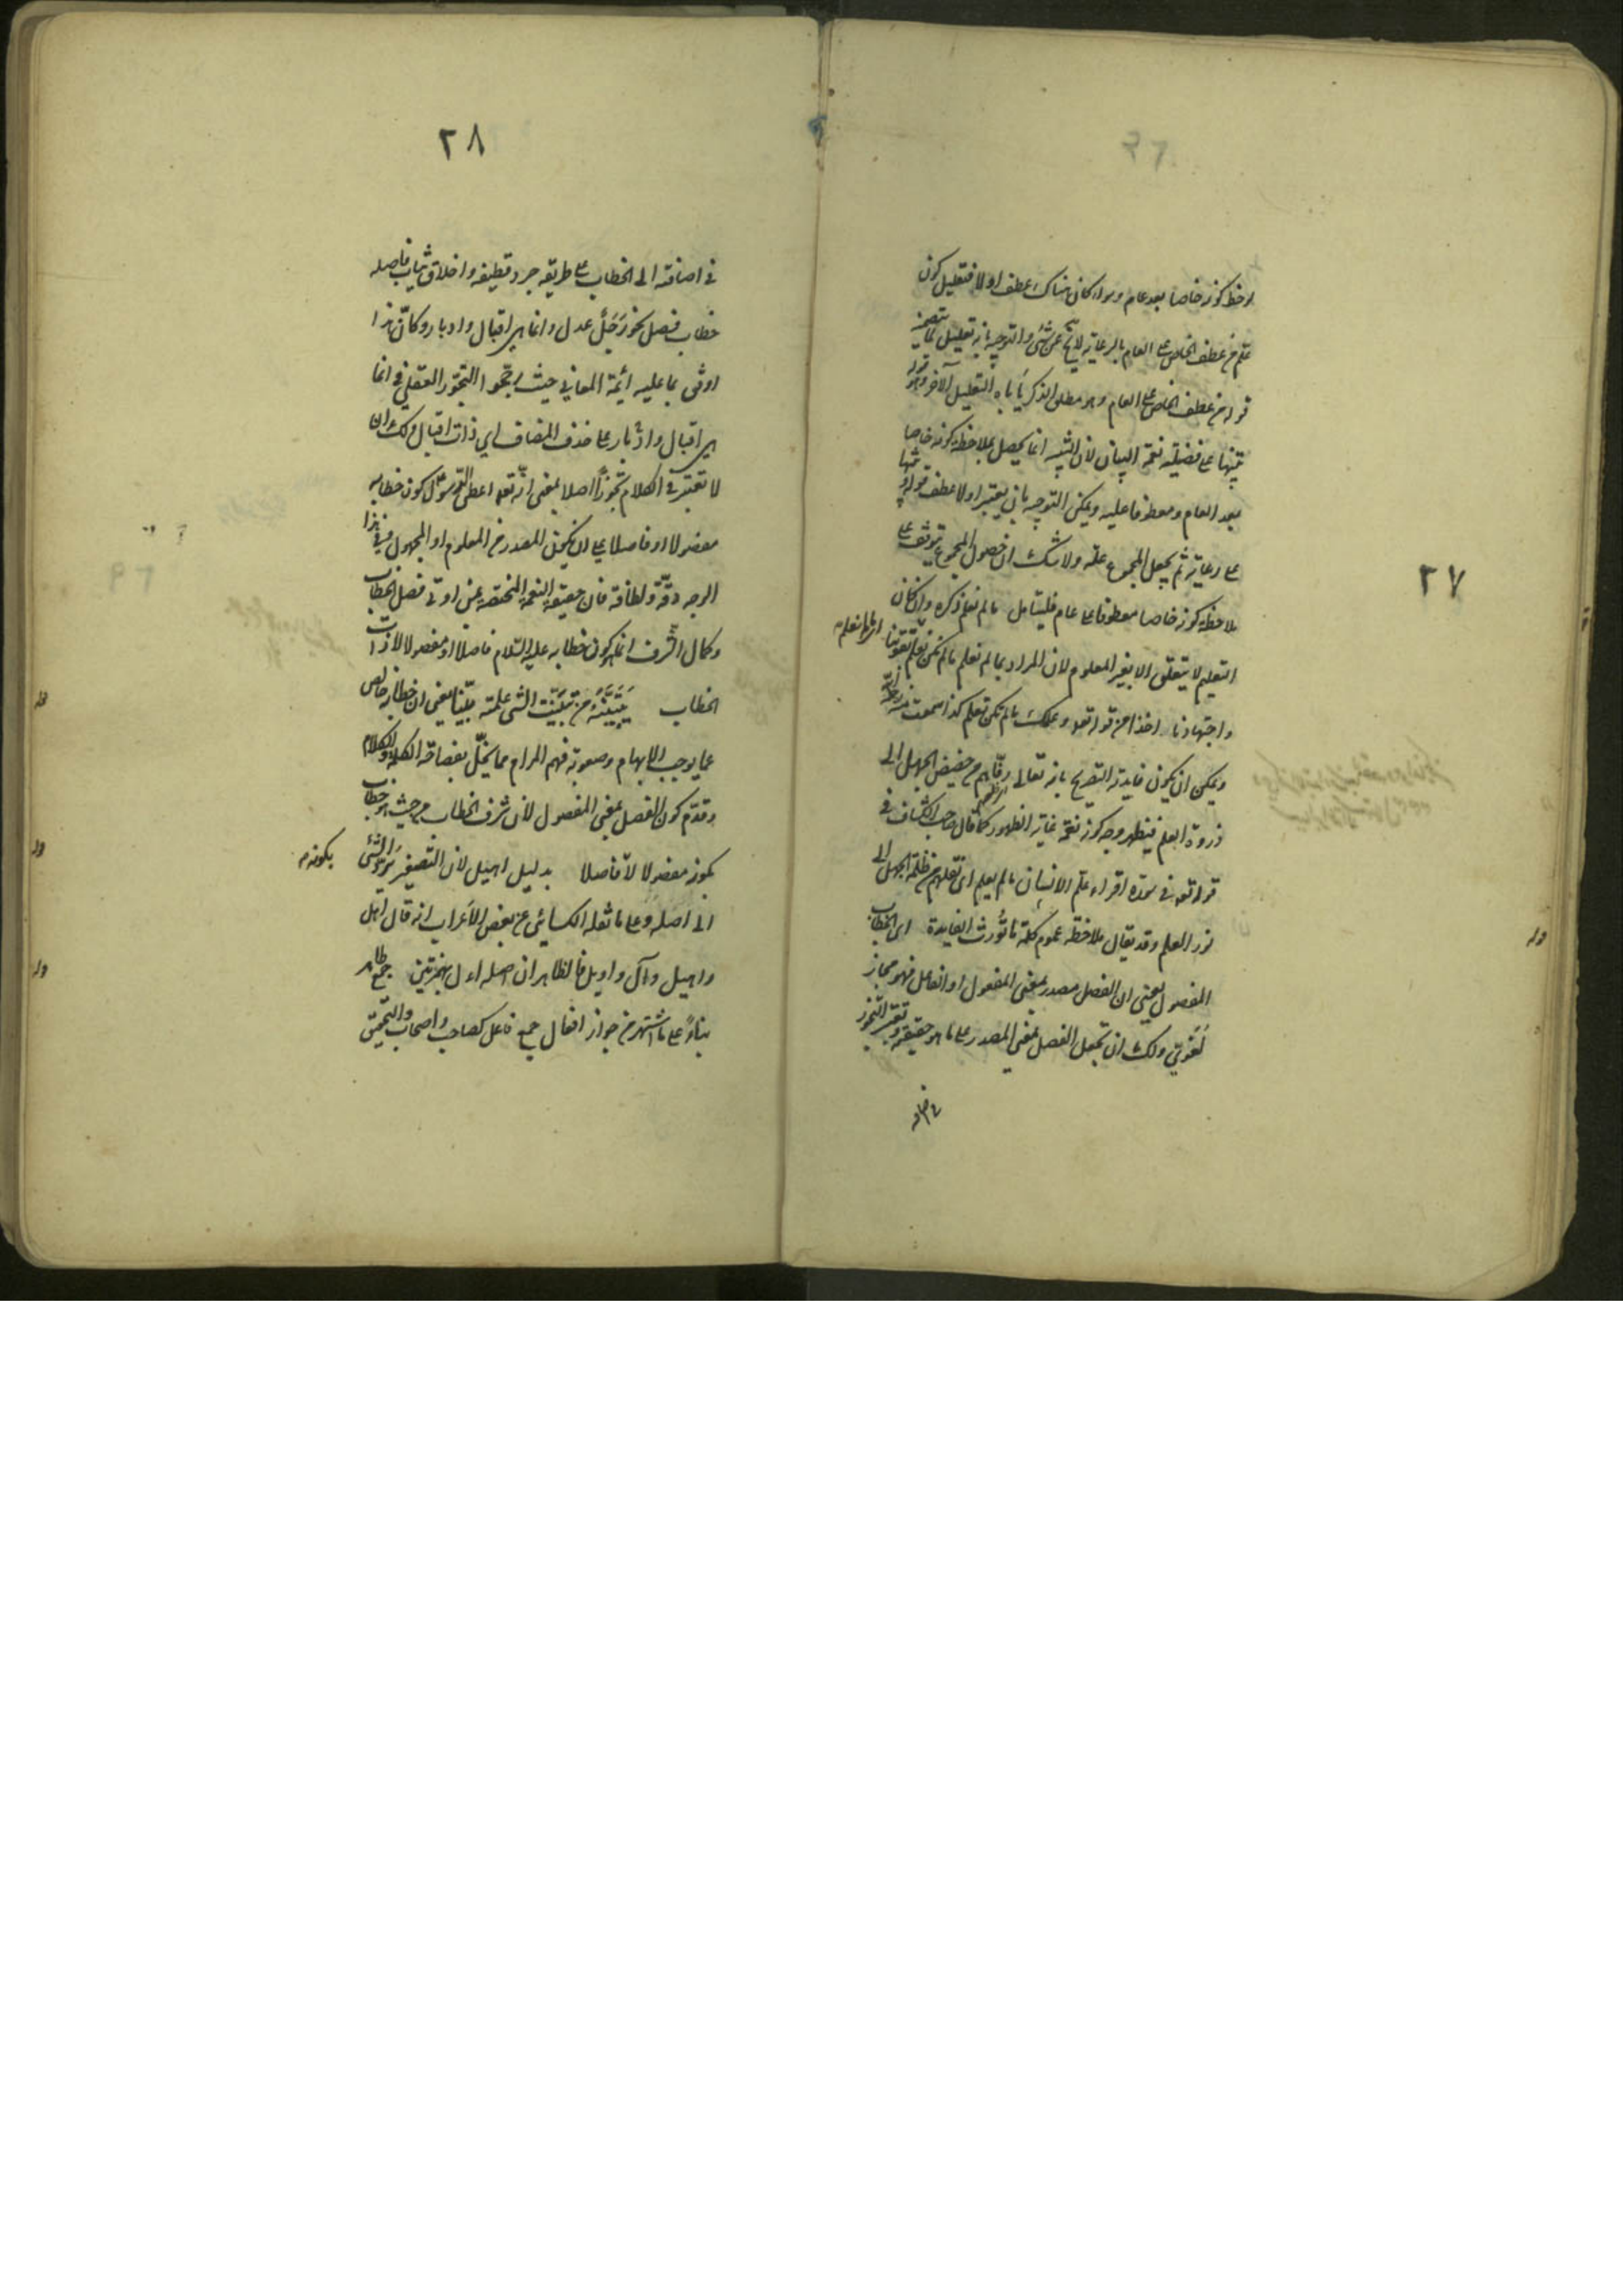 ٢٧
لوحظ كونه خاصا بعد عام وسواء كان هناك عطف اولا فتعليل كون
علم من عطف الخاص على العام بالرعاية لا يخ عن شئ والتوجيه بانه تعليل لما يتضمنه
قوله من عطف الخاص على العام وهو مطلق الذكر يأباه التعليل الآخر وهو قوله
تنبيها على فضيلة نعمة البيان لان التنبيه انما يحصل بملاحظة كونه خاصا
بعد العام ومعطوفا عليه ويمكن التوجيه بان يعتبر اولا عطف قوله تنبيها
على رعاية ثم يجعل المجموع علة ولا شك ان حصول المجموع يتوقف على
ملاحظة كونه خاصا معطوفا على عام فليتامل ما لم نعلم ذكره وان كان
التعليم لا يتعلق الا بغير المعلوم لان المراد بما لم نعلم ما لم نكن نعلم بقوتنا
واجتهادنا اخذا من قوله تعه وعلمك ما لم تكن تعلم كذا سمعت منه
ويمكن ان يكون فايدة التصريح بانه تعالى رقاهم من حضيض الجهل الى
ذروة العلم فيظهر وجه كونه نعمة غاية الظهور كما قال صاحب الكشاف في
قوله تعه في سورة اقراء علم الانسان ما لم يعلم اى نقلهم من ظلمة الجهل الى
نور العلم وقد يقال ملاحظة عموم كلمة ما تورث الفايدة اى الخطاب
المفصول يعني ان الفصل مصدر بمعنى المفعول او الفاعل فهو مجاز
لغوي ولك ان تجعل الفصل بمعنى المصدر على ما هو حقيقة وتعتبر التجوز
٢٨
في اضافته الى الخطاب على طريقة جرد قطيفة واخلاق ثياب فاصله
خطاب فصل نحو رجل عدل وانما هي اقبال وادبار وكان هذا
اوفق بما عليه ائمة المعاني حيث رجحوا التجوز العقلي في انما
هي اقبال وادبار على حذف المضاف اي ذات اقبال ولك ان
لا تعتبر في الكلام تجوزا اصلا بمعنى انه تعه اعطى الرسول كون خطابه
مفصولا او فاصلا على ان يكون المصدر من المعلوم او المجهول وفي هذا
الوجه دقة ولطافة فان حقيقة النعمة المختصة بمن اوتي فصل الخطاب
وكمال الشرف انما هو كون خطابه عليه السلام فاصلا او مفصولا لا ذات
الخطاب يتبينه من تبينت الشئ علمته بينا يعنى ان خطابه خالص
عما يوجب الابهام وصعوبة فهم المرام مما يخل بفصاحة الكلمة والكلام
وقدم كون الفصل بمعنى المفصول لان شرف الخطاب من حيث هو خطاب
بكونه مفصولا لا فاصلا بدليل اهيل لان التصغير يرد الشئ
الى اصله وعلى ما نقله الكسائي عن بعض الاعراب انه قال اهل
واهيل وآل واويل فالظاهر ان اصله اءل بهمزتين جمع طاهر
بناء على ما اشتهر من جواز افعال جمع فاعل كصاحب واصحاب والتحقيق